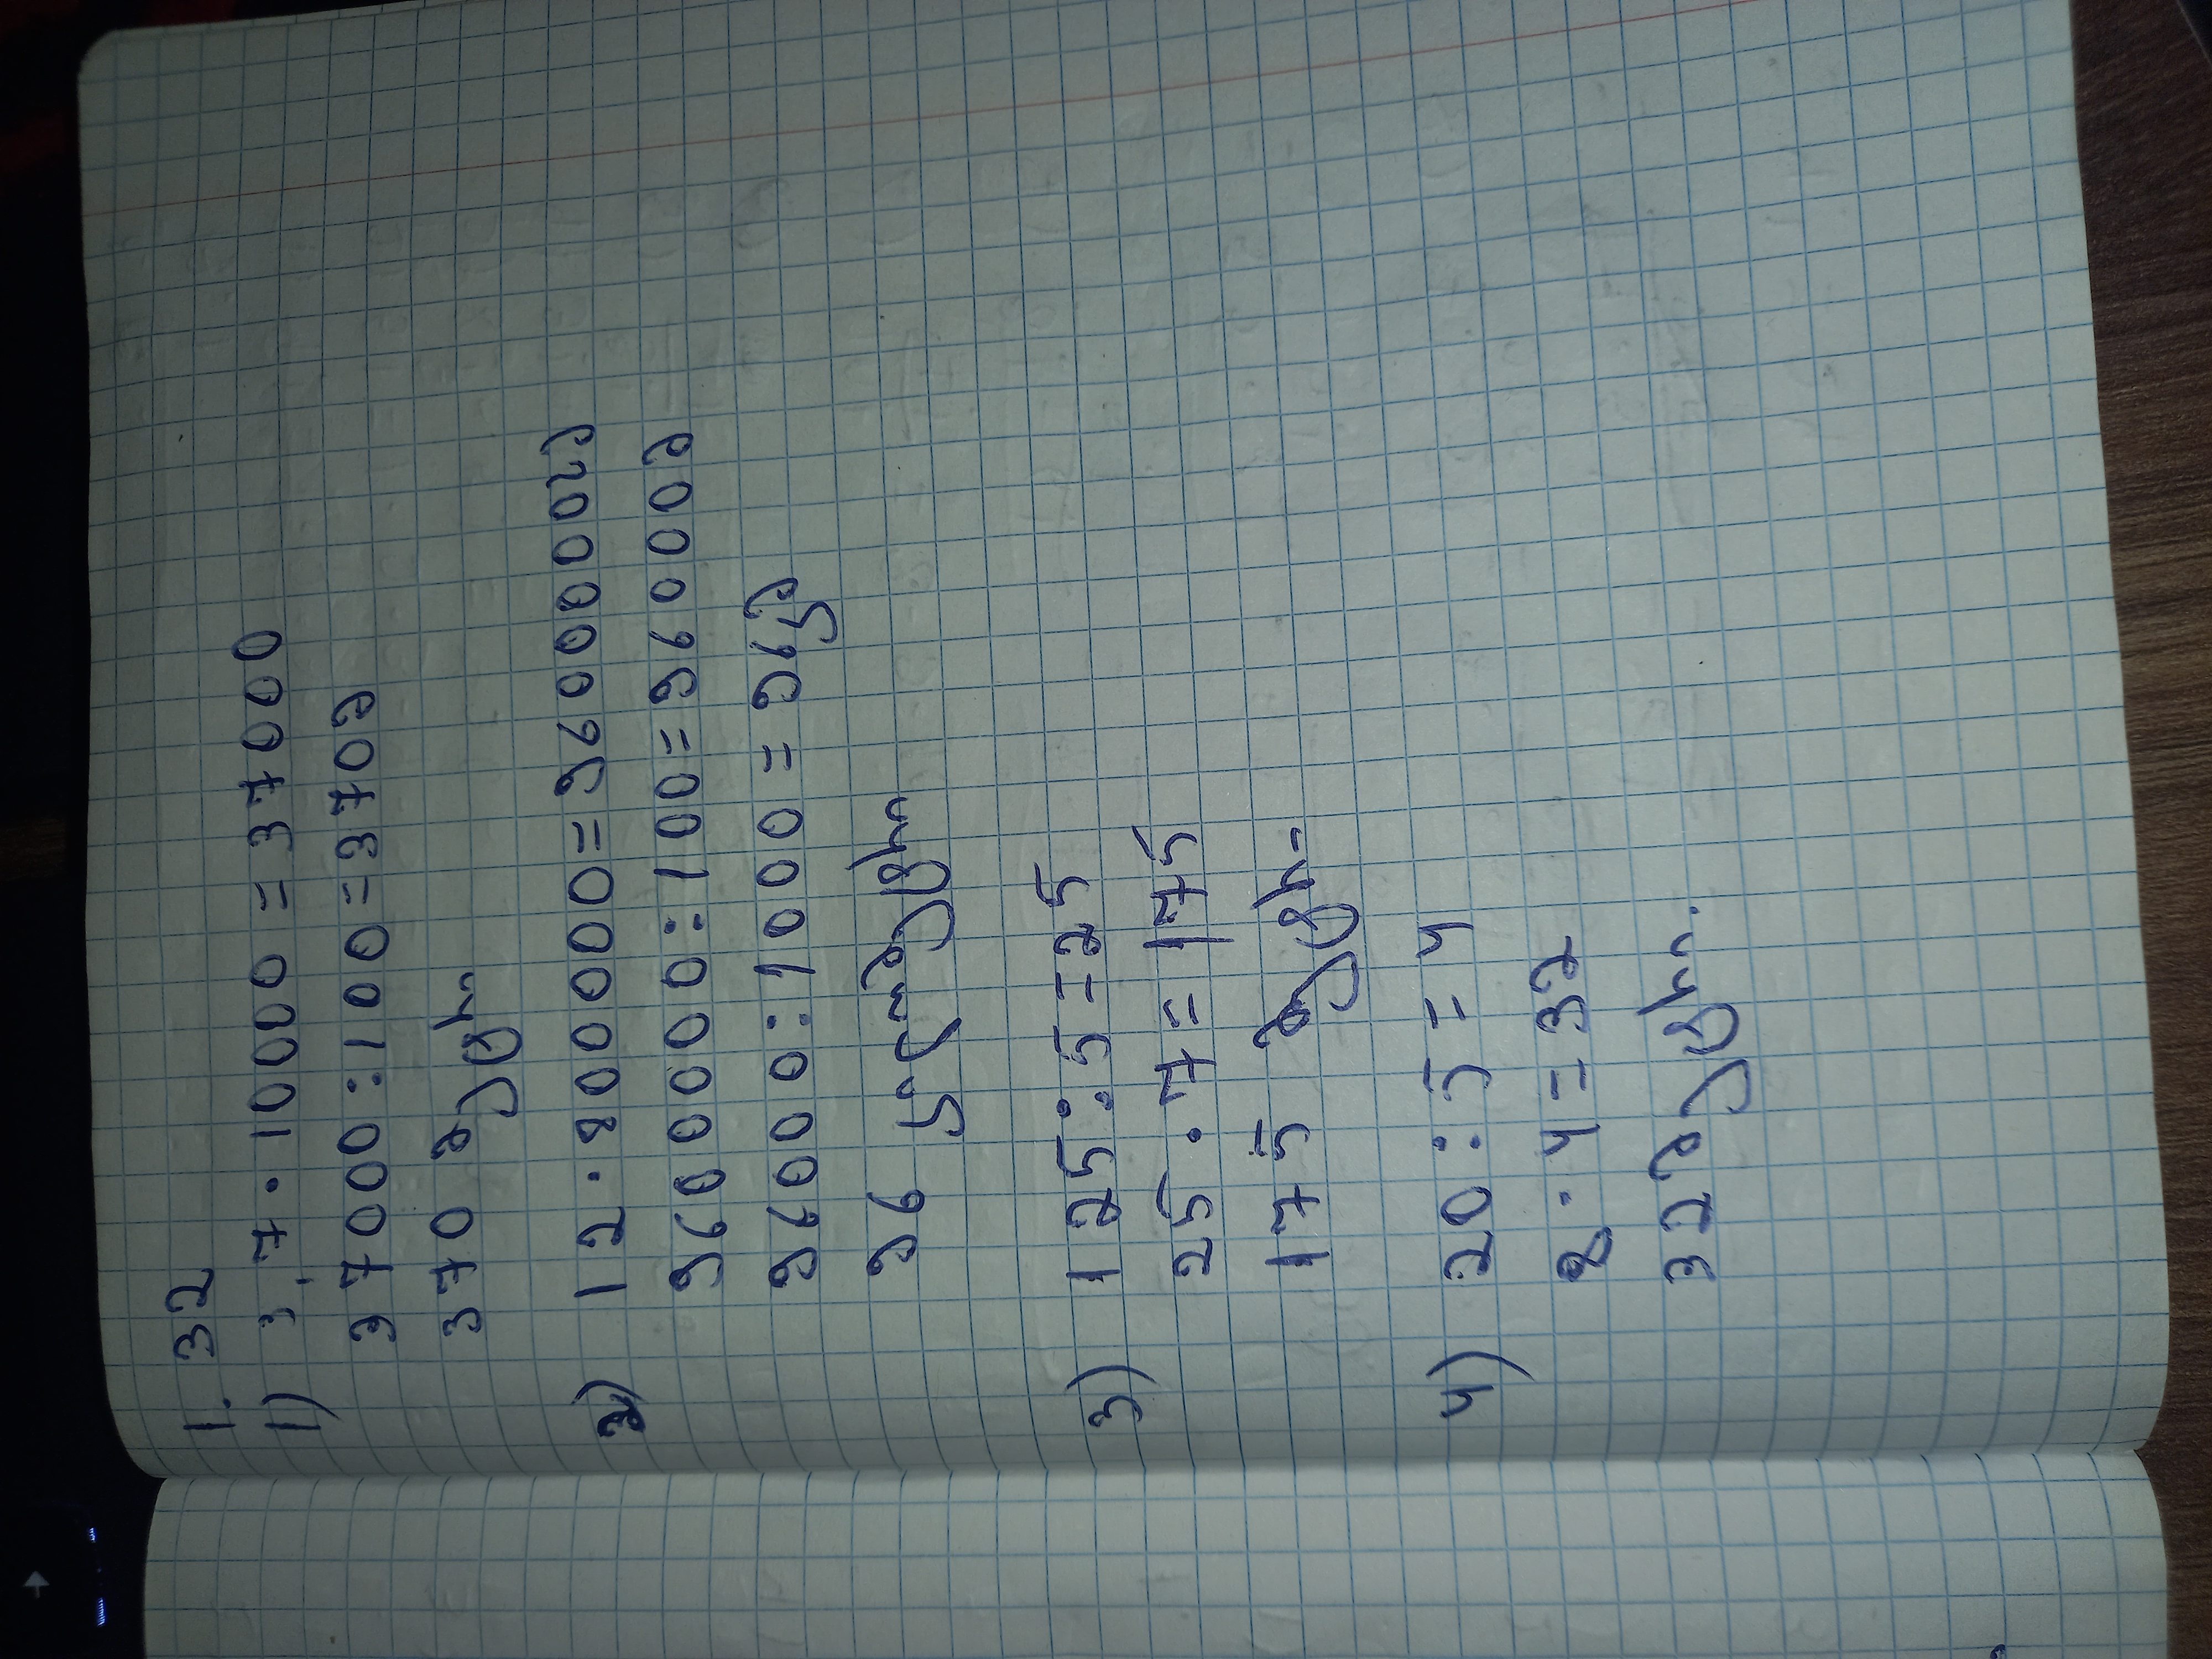 1. 32
1) 3,7 · 10000 = 37000
37000 : 100 = 370მ
370 მეტრი
2) 12 · 800000 = 9600000სმ
9600000 : 100 = 96000მ
96000 : 1000 = 96კმ
96 კილომეტრი
3) 125 : 5 = 25
25 · 7 = 175
175 მეტრი
4) 20 : 5 = 4
8 · 4 = 32
32 მეტრი.